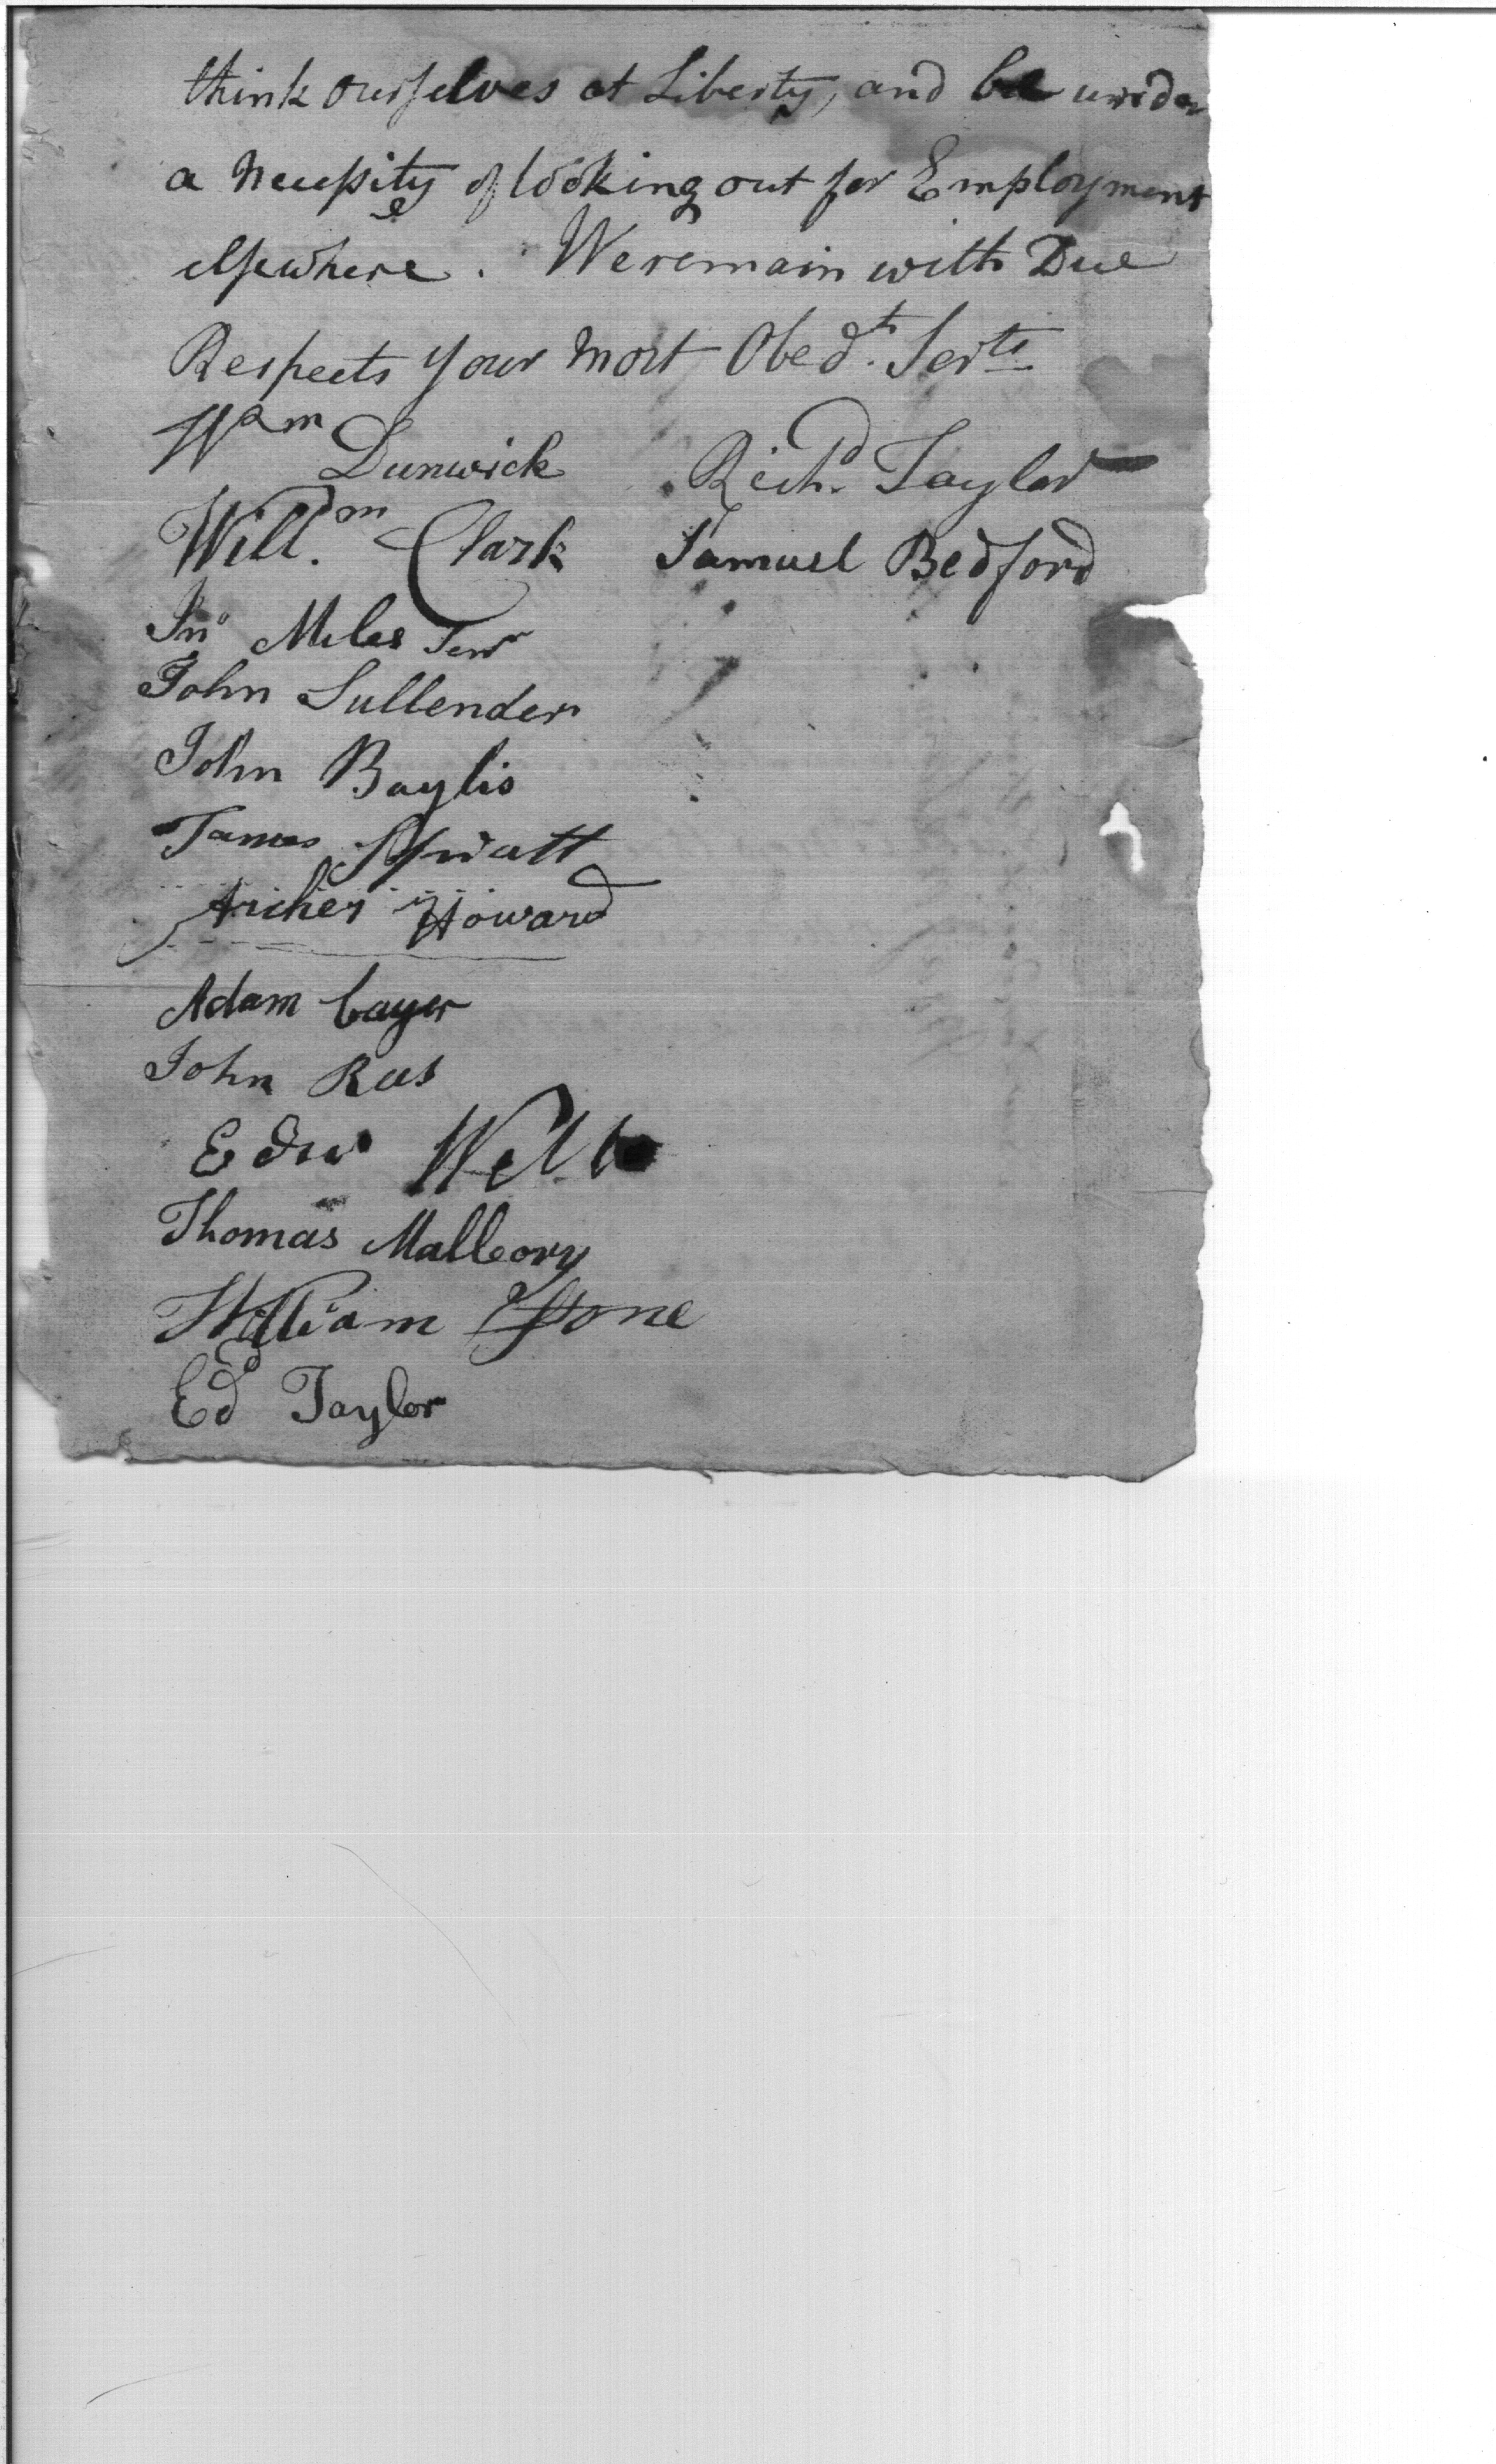 think ourselves at Liberty, and be under
a Necessity of looking out for Employment
elsewhere. We remain with Due
Respects your most Obedt. Serts
Wam Dunwick Richd. Taylor
Willm. Clark Samuel Bedford
Jno Miles Senr
John Sullender
John Baylis
James Spratt
Archer Howard
Adam Cayer
John Ras
Edw Webb
Thomas Malleory
William Stone
Ed Taylor